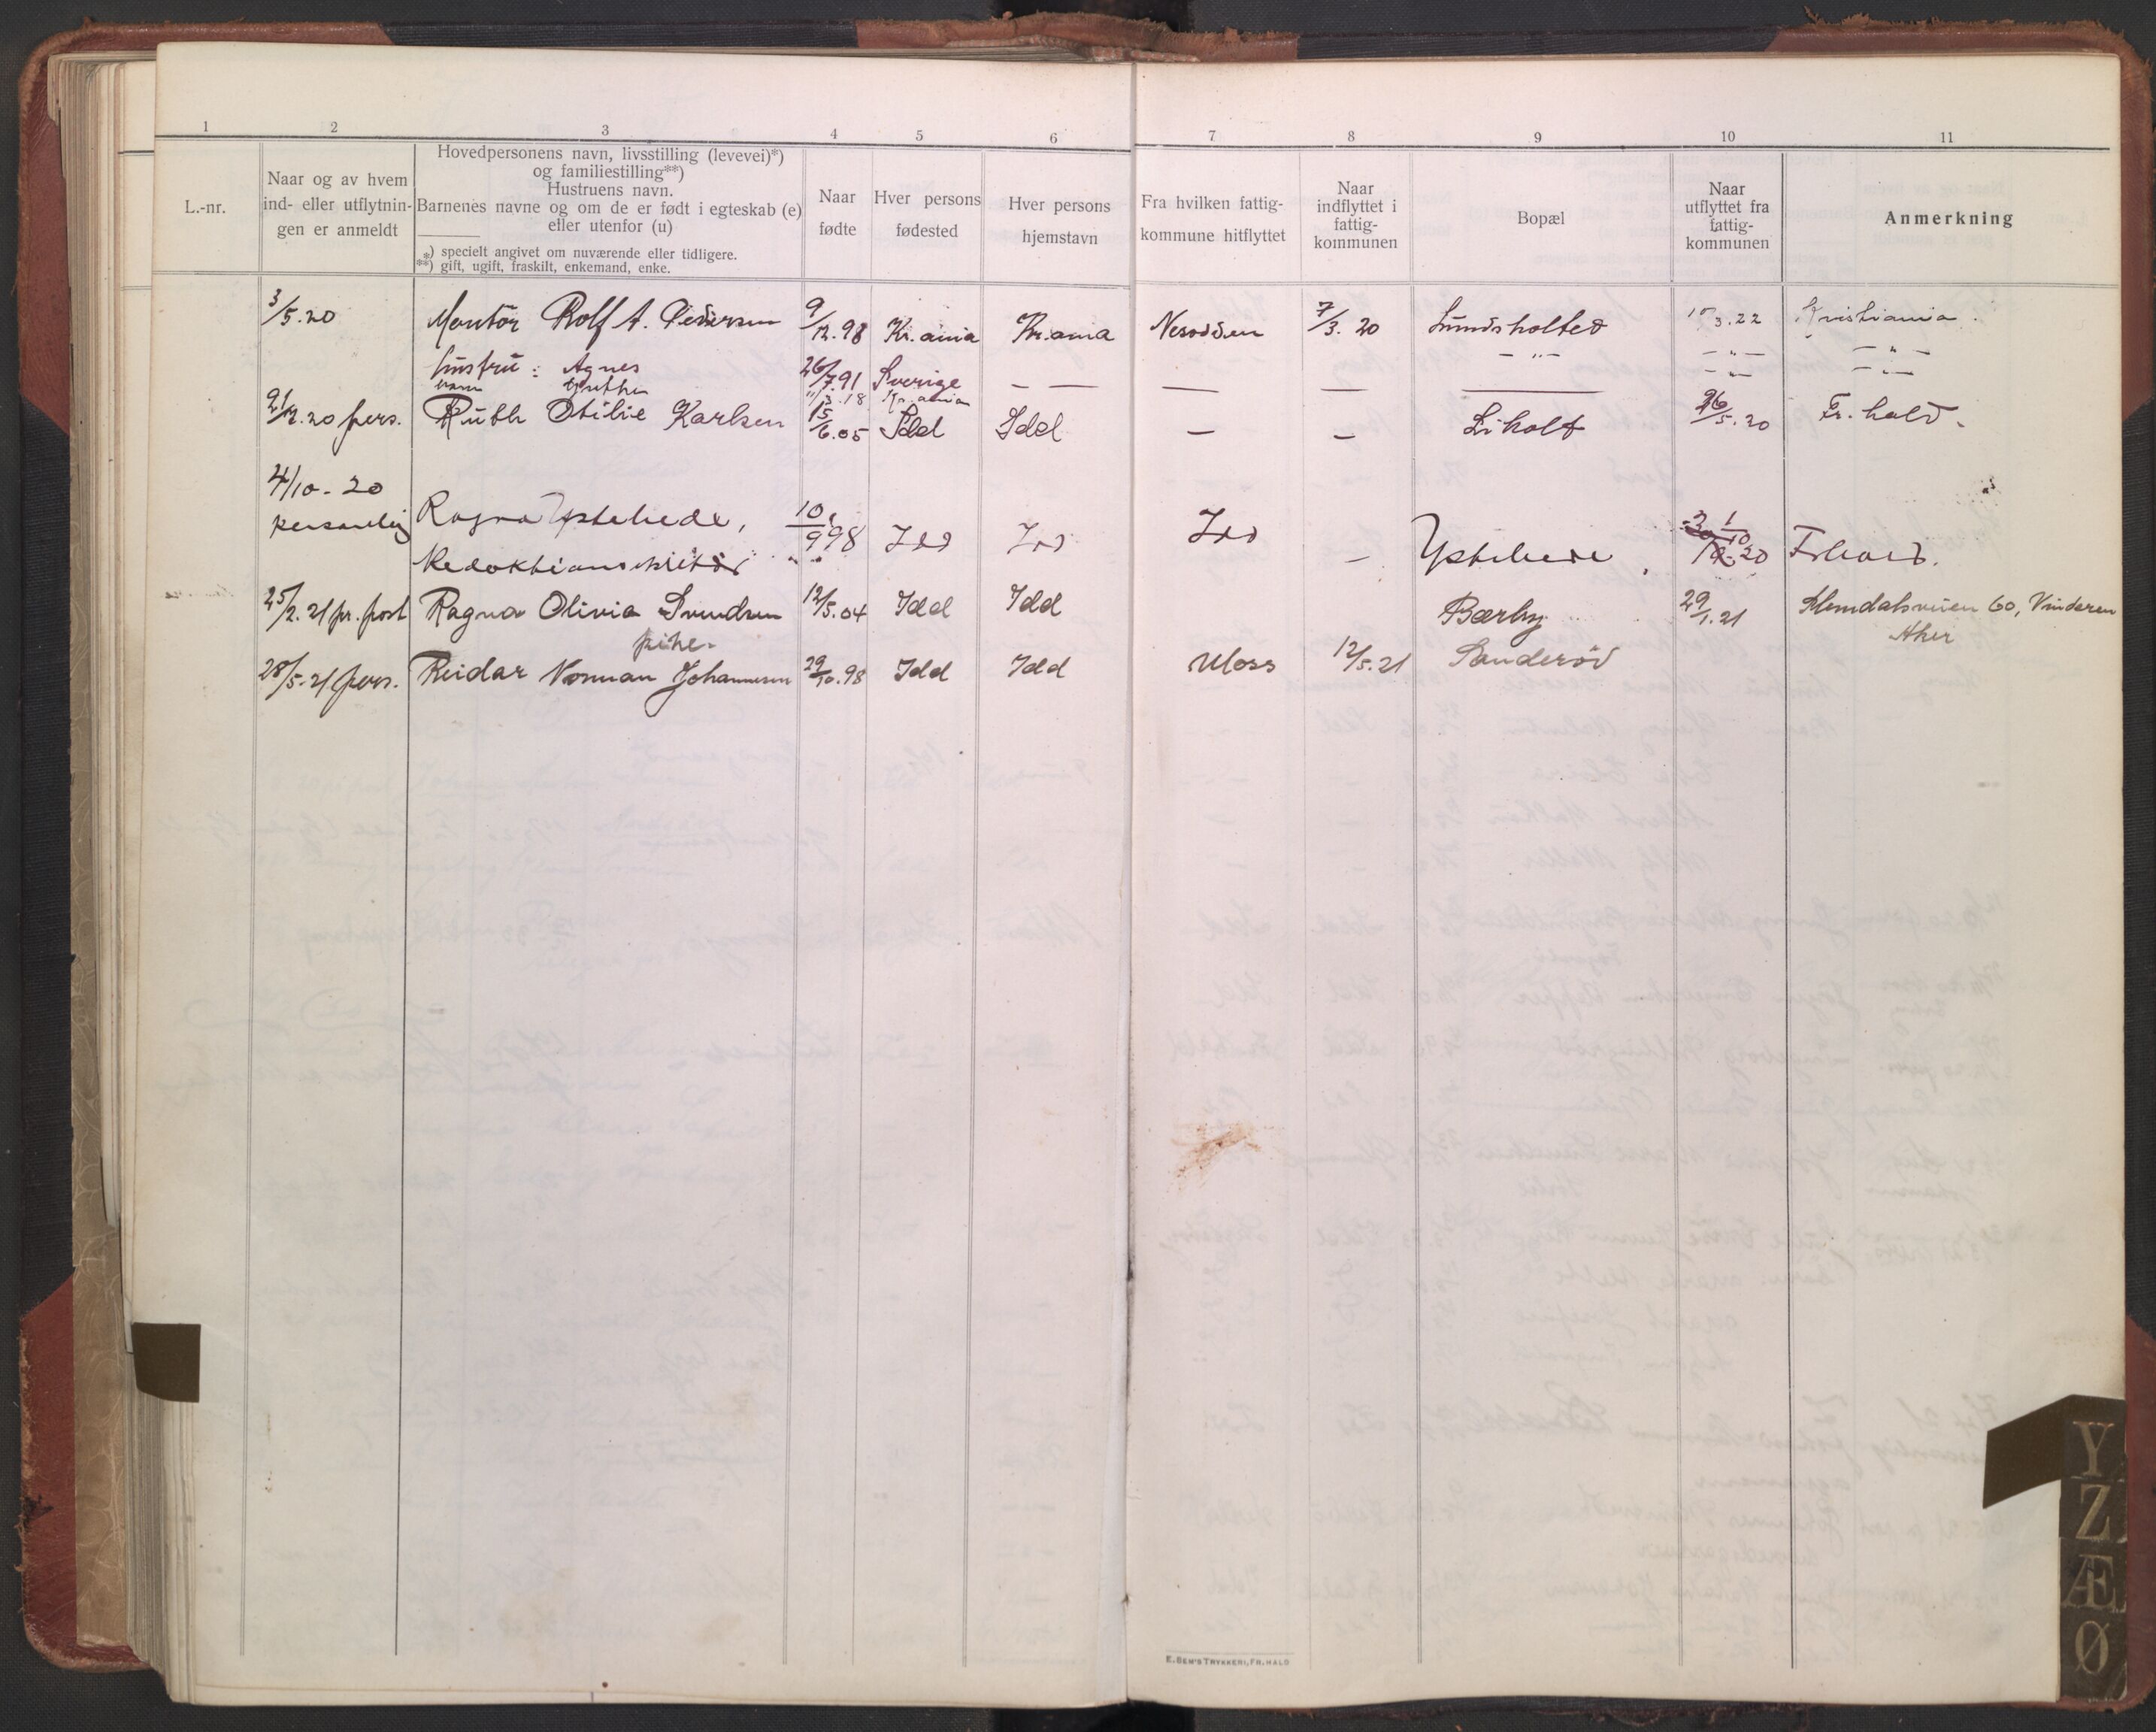 1 2 3 4 5 6 7 8 9 10 11
L.-nr.
Naar og av hvem
ind- eller utflytnin-
gen er anmeldt
Hovedpersonens navn, livsstilling (levevei)*)
og familiestilling**)
Hustruens navn.
Barnenes navne og om de er født i egteskab (e)
eller utenfor (u)
*) specielt angivet om nuværende eller tidligere.
**) gift, ugift, fraskilt, enkemand, enke.
Naar
fødte
Hver persons
fødested
Hver persons
hjemstavn
Fra hvilken fattig-
kommune hitflyttet
Naar
indflyttet i
fattig-
kommunen
Bopæl
Naar
utflyttet fra
fattig-
kommunen
Anmerkning
3/5.20 Montör Rolf A. Pedersen 9/12.98 Kr.ania Kr.ania Nesodden 7/3.20 Lundsholtet 10/3.22 Kristiania.
hustru: Agnes 26/7.91 Sverige — — — — - " - - " - - " -
barn Grethe 11/3.18 Kr.ania - " - - " -
21/2.20 pers. Ruth Otilie Karlsen 15/6.05 Idd Idd — — Liholt 26/5.20 Fr.hald.
4/10-20
personlig Ragna Ystehede, 10/9 98 Idd Idd Idd — Ystehede 1/10 20 Frhald.
Redaktions
25/2.21 pr. post Ragna Olivia Svendsen 12/5.04 Idd Idd Bærby 29/1.21 Slemdalsveien 60, Vinderen
pike. Aker
28/5.21 pers. Reidar Norman Johannesen 29/10.98 Idd Idd Moss 12/5.21 Sanderöd
E. SEM'S TRYKKERI, FR.HALD
Y
Z
Æ
Ø